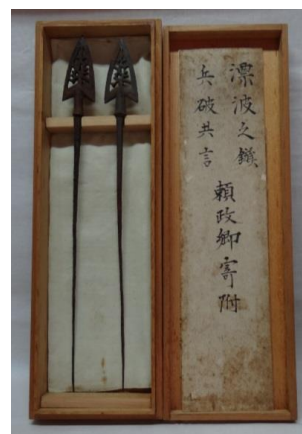 漂波之鏃
兵破共言
頼政卿寄附